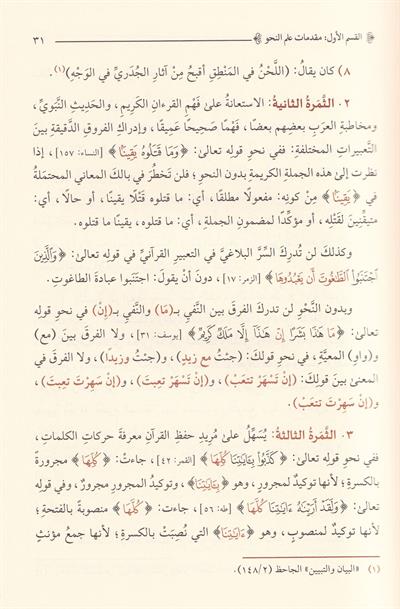 القسم الأول: مقدمات علم النحو ٣١
٨) كان يقالُ: (اللَّحْنُ في المَنْطِقِ أقبحُ مِنْ آثارِ الجُدَرِيِّ في الوَجْهِ)(١).
٢. الثَّمرَةُ الثانيةُ: الاستعانةُ علىٰ فَهْمِ القرءانِ الكَرِيمِ، والحَدِيثِ النَّبَوِيِّ،
ومخاطبةِ العرَبِ بعضِهم بعضا، فَهْمًا صَحِيحًا عَمِيقًا، وإدراكِ الفروقِ الدَّقيقةِ بينَ
التَّعبيراتِ المختلفةِ: ففي نحوِ قوله تعالىٰ: ﴿وَمَا قَتَلُوهُ يَقِينًا﴾ [النساء: ١٥٧]، إذا
نظرتَ إلىٰ هذه الجملةِ الكريمةِ بدونِ النحوِ؛ فلن تَخطُرَ في بالكَ المعاني المحتملَةُ
في ﴿يَقِينًا﴾ مِنْ كونِه: مفعولًا مطلقًا، أي: ما قتلوه قَتْلًا يقينًا، أو حالًا، أي:
متيقِّنِينَ لقَتْلِه، أو مؤكِّدًا لمضمونِ الجملةِ، أي: ما قتلوه، يقينًا ما قتلوه.
وكذلكَ لن تُدرِكَ السِّرَّ البلاغيَّ في التعبيرِ القرآنيِّ في قولِه تعالىٰ: ﴿وَٱلَّذِينَ
ٱجْتَنَبُوا۟ ٱلطَّٰغُوتَ أَن يَعْبُدُوهَا﴾ [الزمر: ١٧]، دونَ أنْ يقولَ: اجتَنَبوا عبادةَ الطاغوتِ.
وبدون النَّحْوِ لن تدركَ الفرقَ بينَ النَّفْيِ بـ(مَا) والنَّفْيِ بـ(إِنْ) في نحوِ قولِه
تعالىٰ: ﴿مَا هَٰذَا بَشَرًا إِنْ هَٰذَآ إِلَّا مَلَكٌ كَرِيمٌ﴾ [يوسف: ٣١]، ولا الفرقَ بينَ (مع)
و(واوِ) المعيَّةِ، في نحوِ قولكَ: (جئتُ مع زيدٍ)، و(جئتُ وزيدًا)، ولا الفرقَ في
المعنىٰ بينَ قولِكَ: (إنْ تَسْهَرْ تتعَبْ)، و(إنْ تَسْهَرْ تعِبتَ)، و(إنْ سَهِرْتَ تعِبتَ)،
و(إن سَهِرْتَ تتعَبْ).
٣. الثَّمرَةُ الثالثةُ: يُسَهِّلُ علىٰ مُريدِ حفظِ القرآنِ معرفةَ حركاتِ الكلماتِ،
ففي نحوِ قولِه تعالىٰ: ﴿كَذَّبُوا۟ بِـَٔايَٰتِنَا كُلِّهَا﴾ [القمر: ٤٢]، جاءتْ: ﴿كُلِّهَا﴾ مجرورةً
بالكسرةِ؛ لأنها توكيدٌ لمجرورٍ، وهو ﴿بِـَٔايَٰتِنَا﴾، وتوكيدُ المجرورِ مجرورٌ، وفي قولِه
تعالىٰ: ﴿وَلَقَدْ أَرَيْنَٰهُ ءَايَٰتِنَا كُلَّهَا﴾ [طه: ٥٦]، جاءت: ﴿كُلَّهَا﴾ منصوبةً بالفتحةِ؛
لأنها توكيدٌ لمنصوبٍ، وهو ﴿ءَايَٰتِنَا﴾ التي نُصِبَتْ بالكسرةِ؛ لأنها جمعُ مؤنثٍ
(١) «البيان والتبيين» الجاحظ (٢/ ١٤٨).